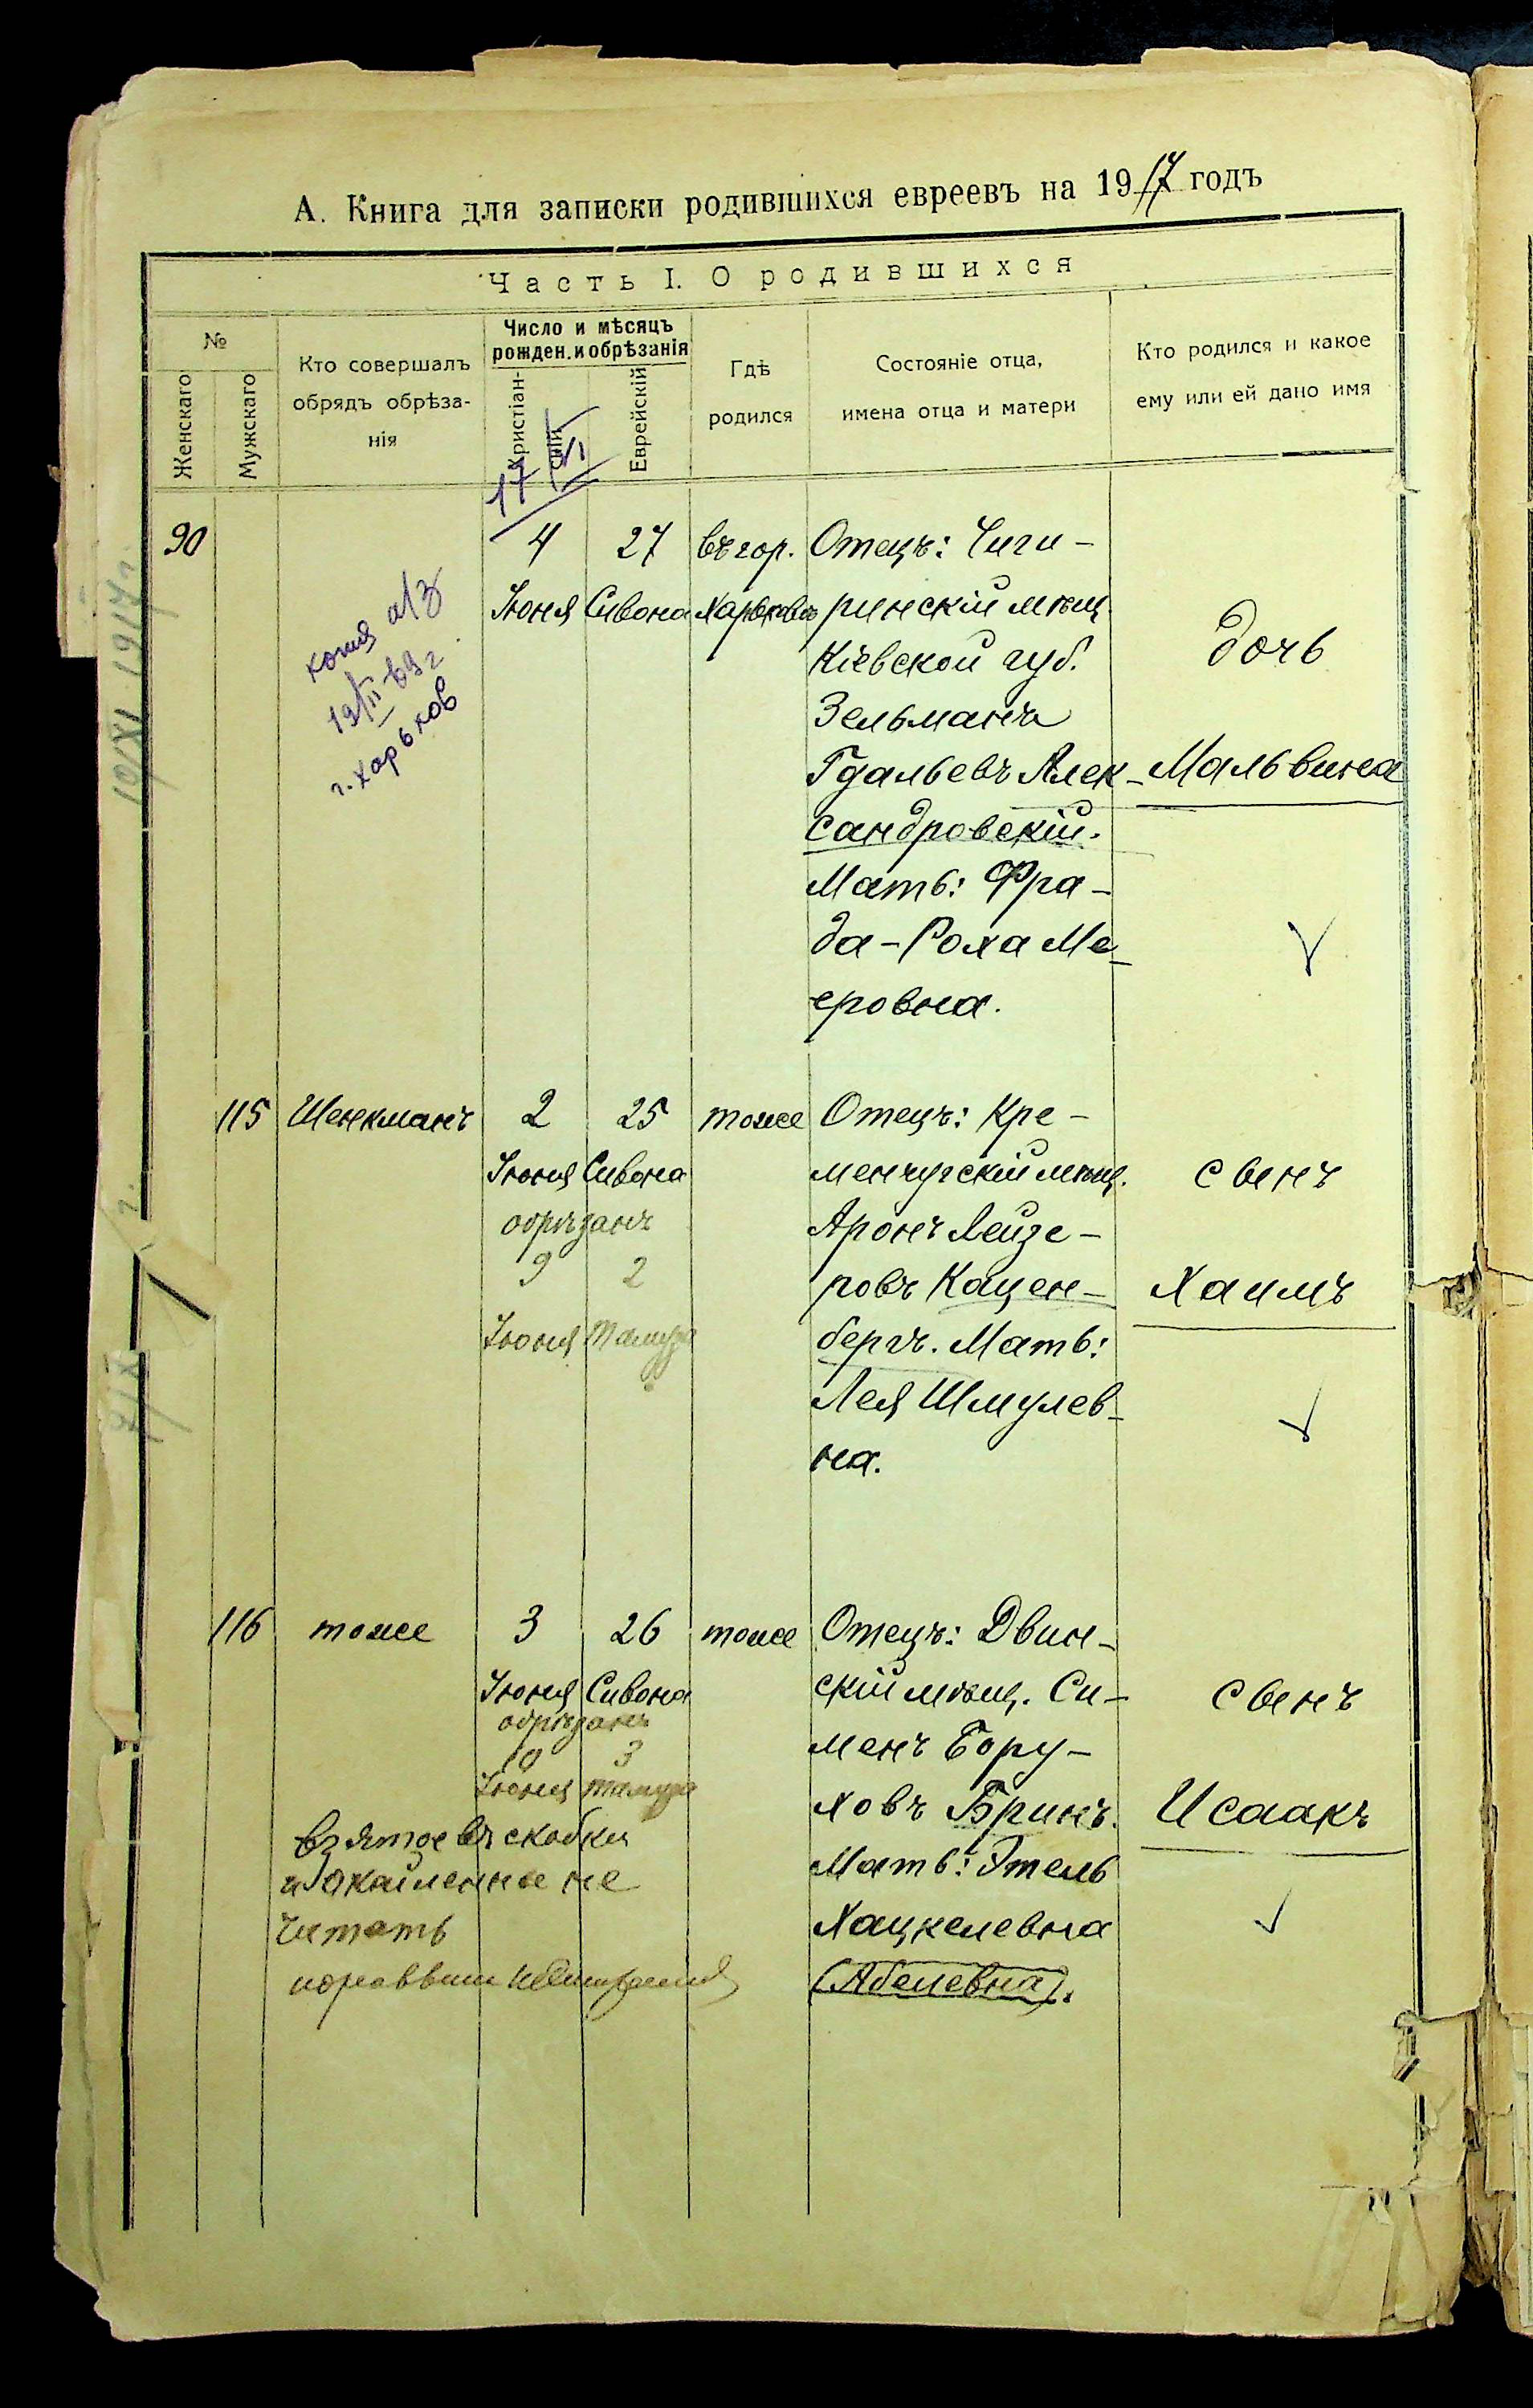 А. Книга для записки родившихся евреевъ на 1917 годъ
Часть I. О родившихся
№
Женскаго
Мужскаго
Кто совершалъ
обрядъ обрѣза-
нія
Число и мѣсяцъ
рожден. и обрѣзанія
Христіан-
скій
Еврейскій
Гдѣ
родился
Состояніе отца,
имена отца и матери
Кто родился и какое
ему или ей дано имя
17/VI
90 4 27 въ гор. Отецъ: Чиги-
Іюня Сивона Харьковѣ ринскій мѣщ.
Кіевской губ.
дочь
Зельманъ
Гдальевъ Алек-
Мальвина
сандровскій.
Мать: Фра-
да-Роха Ме-
еровна.
копия
г. Харьков
19/XI 1917 г.
115 Шенкманъ 2 25 тоже Отецъ: Кре-
Іюня Сивона менчугскій мѣщ. сынъ
обрѣзанъ Аронъ Лейзе-
9 2 ровъ Кацен- Хаимъ
Іюня Тамуза бергъ. Мать:
Лея Шмулев-
на.
116 тоже 3 26 тоже Отецъ: Двин-
Іюня Сивона скій мѣщ. Си- сынъ
обрѣзанъ
10 3 менъ Бору-
Іюня Тамуза
ховъ Бринъ. Исаакъ
Мать: Этель
Хацкелевна
(Абелевна).
Взятое въ скобки
и окаймленное не
читать